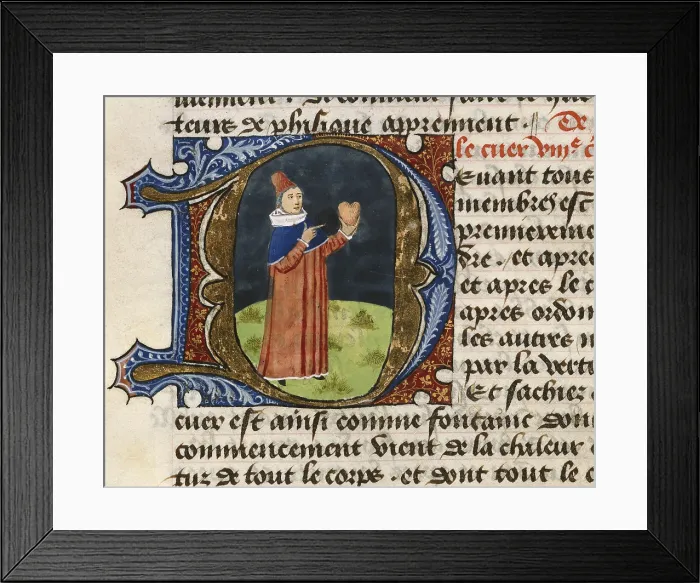 teurs de phisique apprennent . De
le cuer viije c
DEuant tous
membres est
premiereme
dre . et apre
et apres le c
apres ordon
les autres n
par la verti
Et sachiez
cuer est ainsi comme fontaine don
commencement vient de la chaleur
tur de tout le corps . et dont tout le c